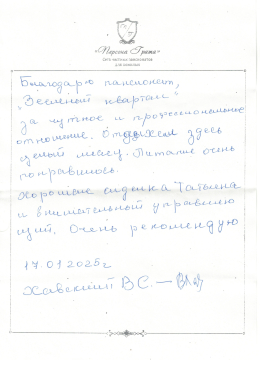 «Первая Грата»
сеть частных пансионатов
для пожилых
Благодарю пансионат,
"Зеленый квартал"
за чуткое и профессиональное
отношение. Отдыхал здесь
целый месяц. Питание очень
понравилось.
Хорошие сиделка Татьяна
и внимательный управляю
щий. Очень рекомендую
17.01.2025г
Хавский В С. —